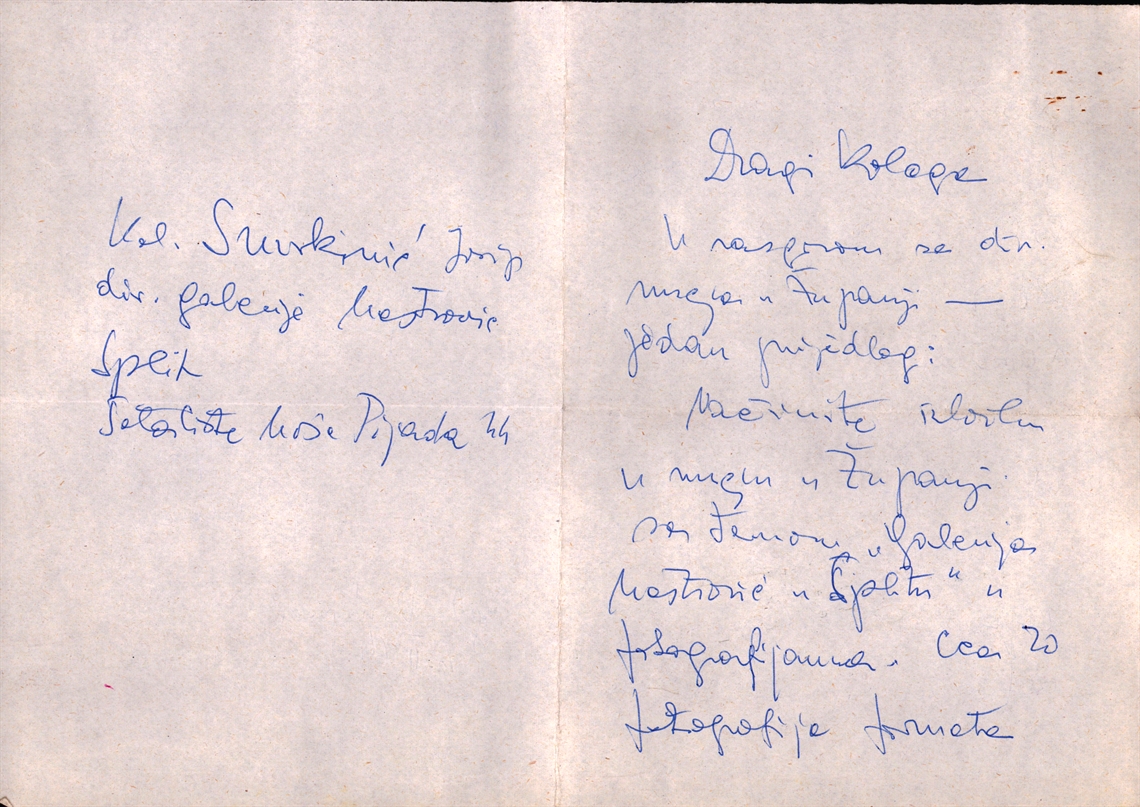 Kol. Smrkinić Josip
dir. galerije Meštrović
Split
Šetalište Moše Pijada 44
Dragi Kolega
U razgovoru sa dir.
muzeja u Županji —
jedan prijedlog:
Načinite izložbu
u muzeju u Županji
sa temom „Galerija
Meštrović u Splitu" u
fotografijama. Cca 20
fotografija formata